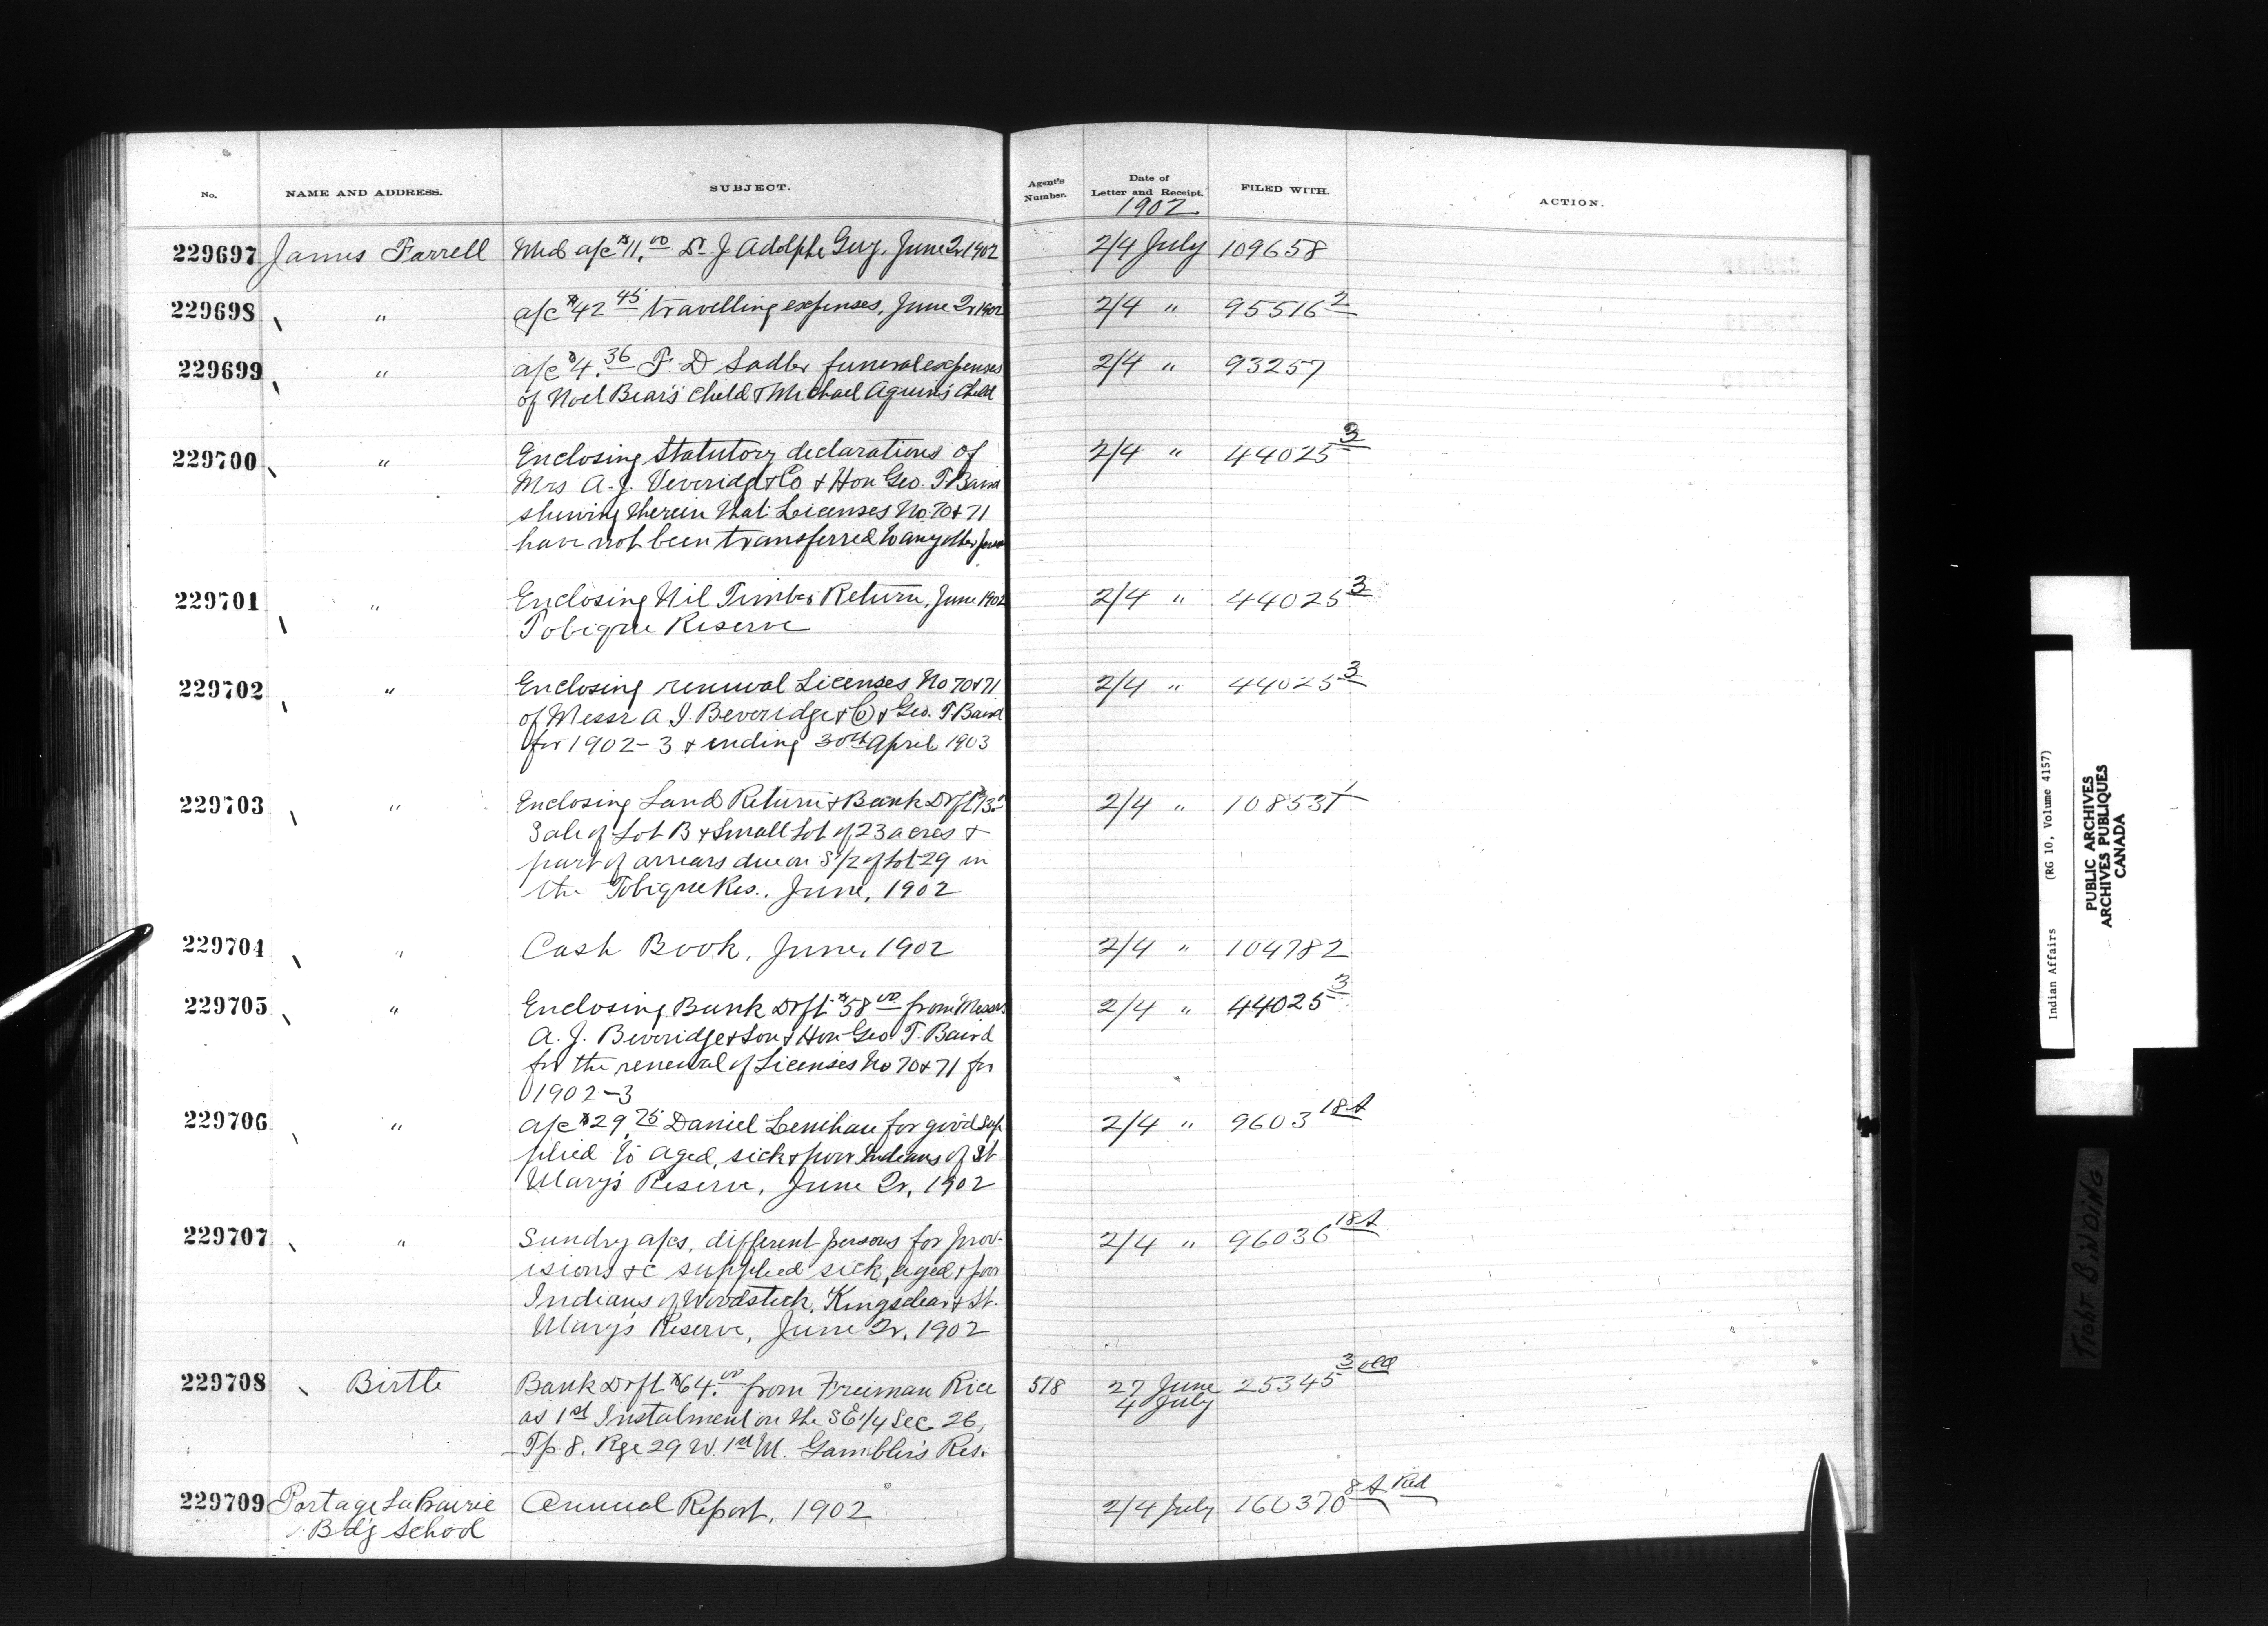 No. NAME AND ADDRESS. SUBJECT. Agent's Number. Date of Letter and Receipt. FILED WITH. ACTION.
1902
229697 James Farrell Med a/c $11.00 Dr. J Adolphe Guy, June Qr 1902 2/4 July 109658
229698 " a/c $42 45 travelling expenses, June Qr 1902 2/4 " 95516 2
229699 " a/c $4.36 F. D Sadler funeral expenses 2/4 " 93257
of Noel Bear's child & Michael Aquin's Child
229700 " Enclosing Statutory declarations of 2/4 " 44025 3
Mrs A. J. Veveridge & Co & Hon Geo. T. Baird
shewing therein that Licenses No. 70 & 71
have not been transferred to any other
229701 " Enclosing Nil Timber Return, June 1902 2/4 " 44025 3
Tobique Reserve
229702 " Enclosing renewal Licenses No 70 & 71 2/4 " 44025 3
of Messr A. J. Beveridge & Co & Geo. T. Baird
for 1902-3 & ending 30th April 1903
229703 " Enclosing Land Return & Bank Drft 2/4 "
Sale of Lot B & Small Lot of 23 acres &
part of arrears due on S 1/2 of Lot 29 in
the Tobique Res., June, 1902
229704 " Cash Book, June, 1902 2/4 " 104782
229705 " Enclosing Bank Drft $58 00 from Messrs 2/4 " 44025 3
A. J. Beveridge & Son & Hon Geo T. Baird
for the renewal of Licenses No 70 & 71 for
1902-3
229706 " a/c $29.75 Daniel Lenihan for good sup 2/4 " 9603 18A
plied to aged, sick & poor Indians of St
Mary's Reserve, June Qr, 1902
229707 " Sundry a/cs, different persons for prov- 2/4 " 96036 18A
isions &c supplied sick, aged & poor
Indians of Woodstock, Kingsclear & St.
Mary's Reserve, June Qr, 1902
229708 Birtle Bank Drft $64.00 from Freeman Rice 518 27 June 25345 3
as 1st Instalment on the SE 1/4 Sec 26, 4 July
Tp. 8, Rge 29 W. 1st M. Gambler's Res.
229709 Portage La Prairie Annual Report, 1902 2/4 July 160370 8A Red
Bd'g School
Indian Affairs (RG 10, Volume 4157)
PUBLIC ARCHIVES
ARCHIVES PUBLIQUES
CANADA
TIGHT BINDING